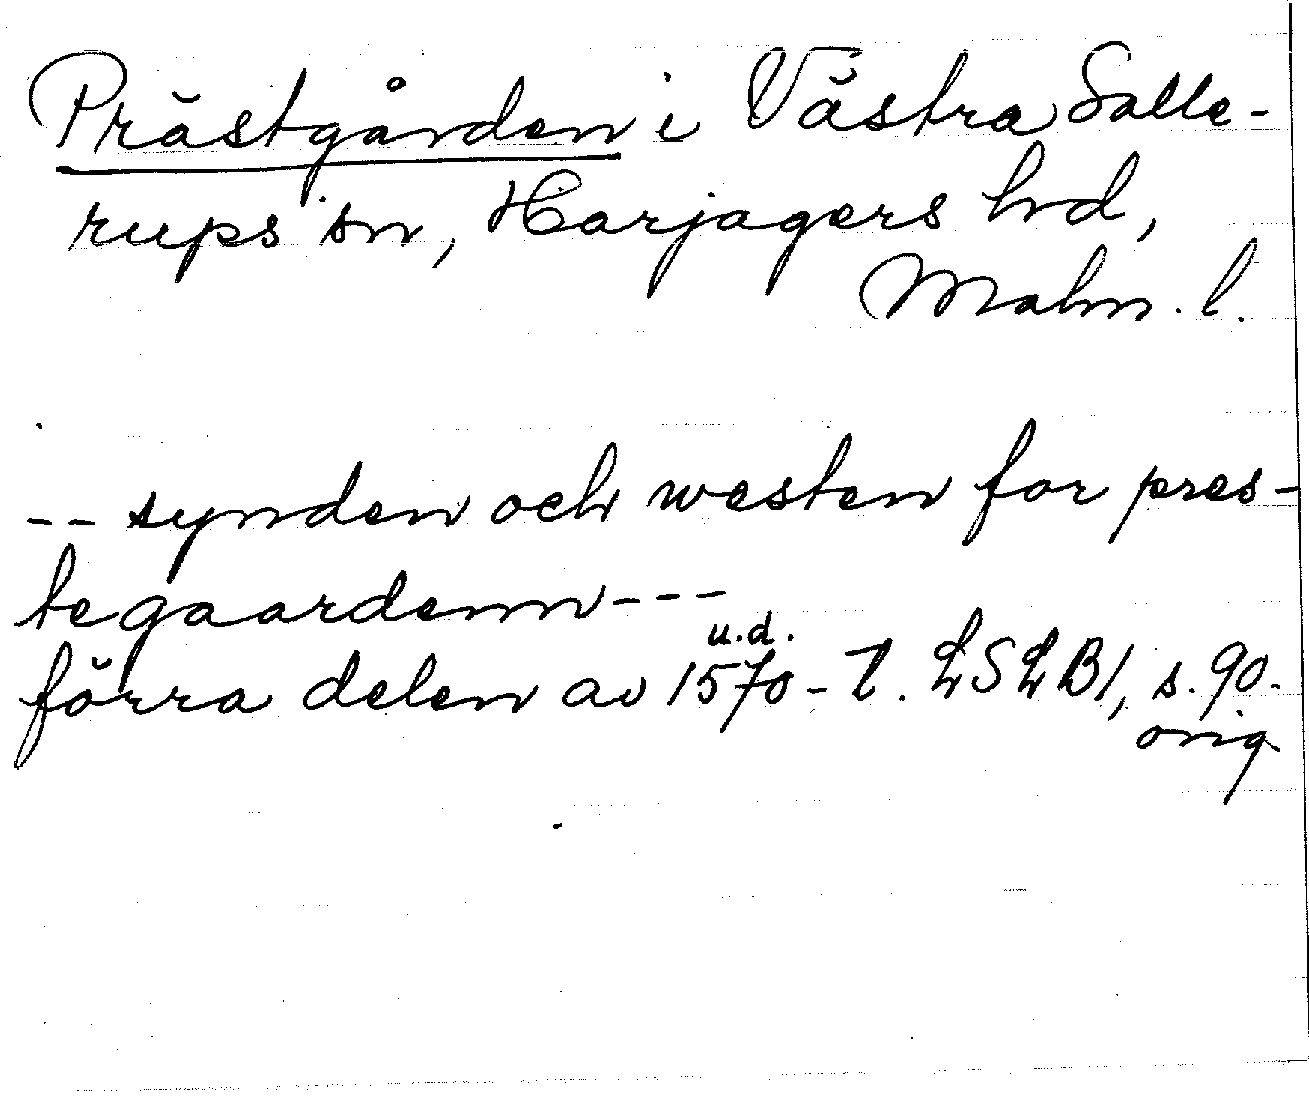 Prästgården i Västra Salle-
rups sn, Harjagers hd,
Malm. l.
-- synden och westen for pres-
tegaardenn ---
u.d.
förra delen av 1570-t. LSLB1, s. 90.
orig